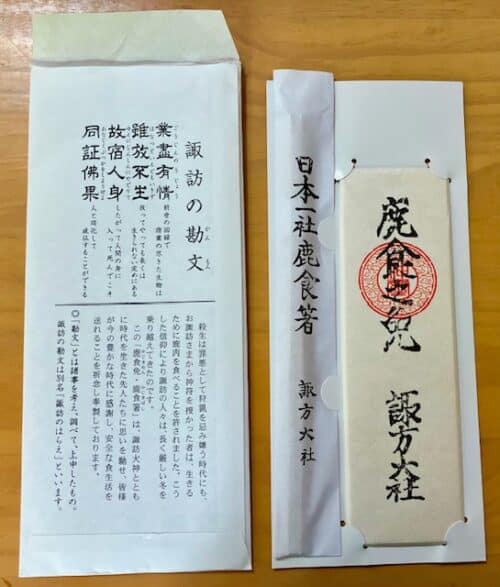 諏訪の勘文
かん もん
業盡有情
前世の因縁で
宿業の尽きた生物は
雖放不生
放ってやっても長くは
生きられない定めにある
故宿人身
したがって人間の身に
入って死んでこそ
同証佛果
人と同化して
成仏することができる
殺生は罪悪として狩猟を忌み嫌う時代にも、
お諏訪さまから神符を授かった者は、生きる
ために鹿肉を食べることを許されました。こう
した信仰により諏訪の人々は、長く厳しい冬を
乗り越えてきたのです。
この「鹿食免・鹿食箸」は、諏訪大神ととも
に時代を生きた先人たちに思いを馳せ、皆様
が今の豊かな時代に感謝し、安全な食生活を
送れることを祈念し奉製しております。
◎「勘文」とは諸事を考え、調べて、上申したもの。
諏訪の勘文は別名『諏訪のはらえ』といいます。
日本一社鹿食箸 諏方大社
鹿食之免 諏方大社